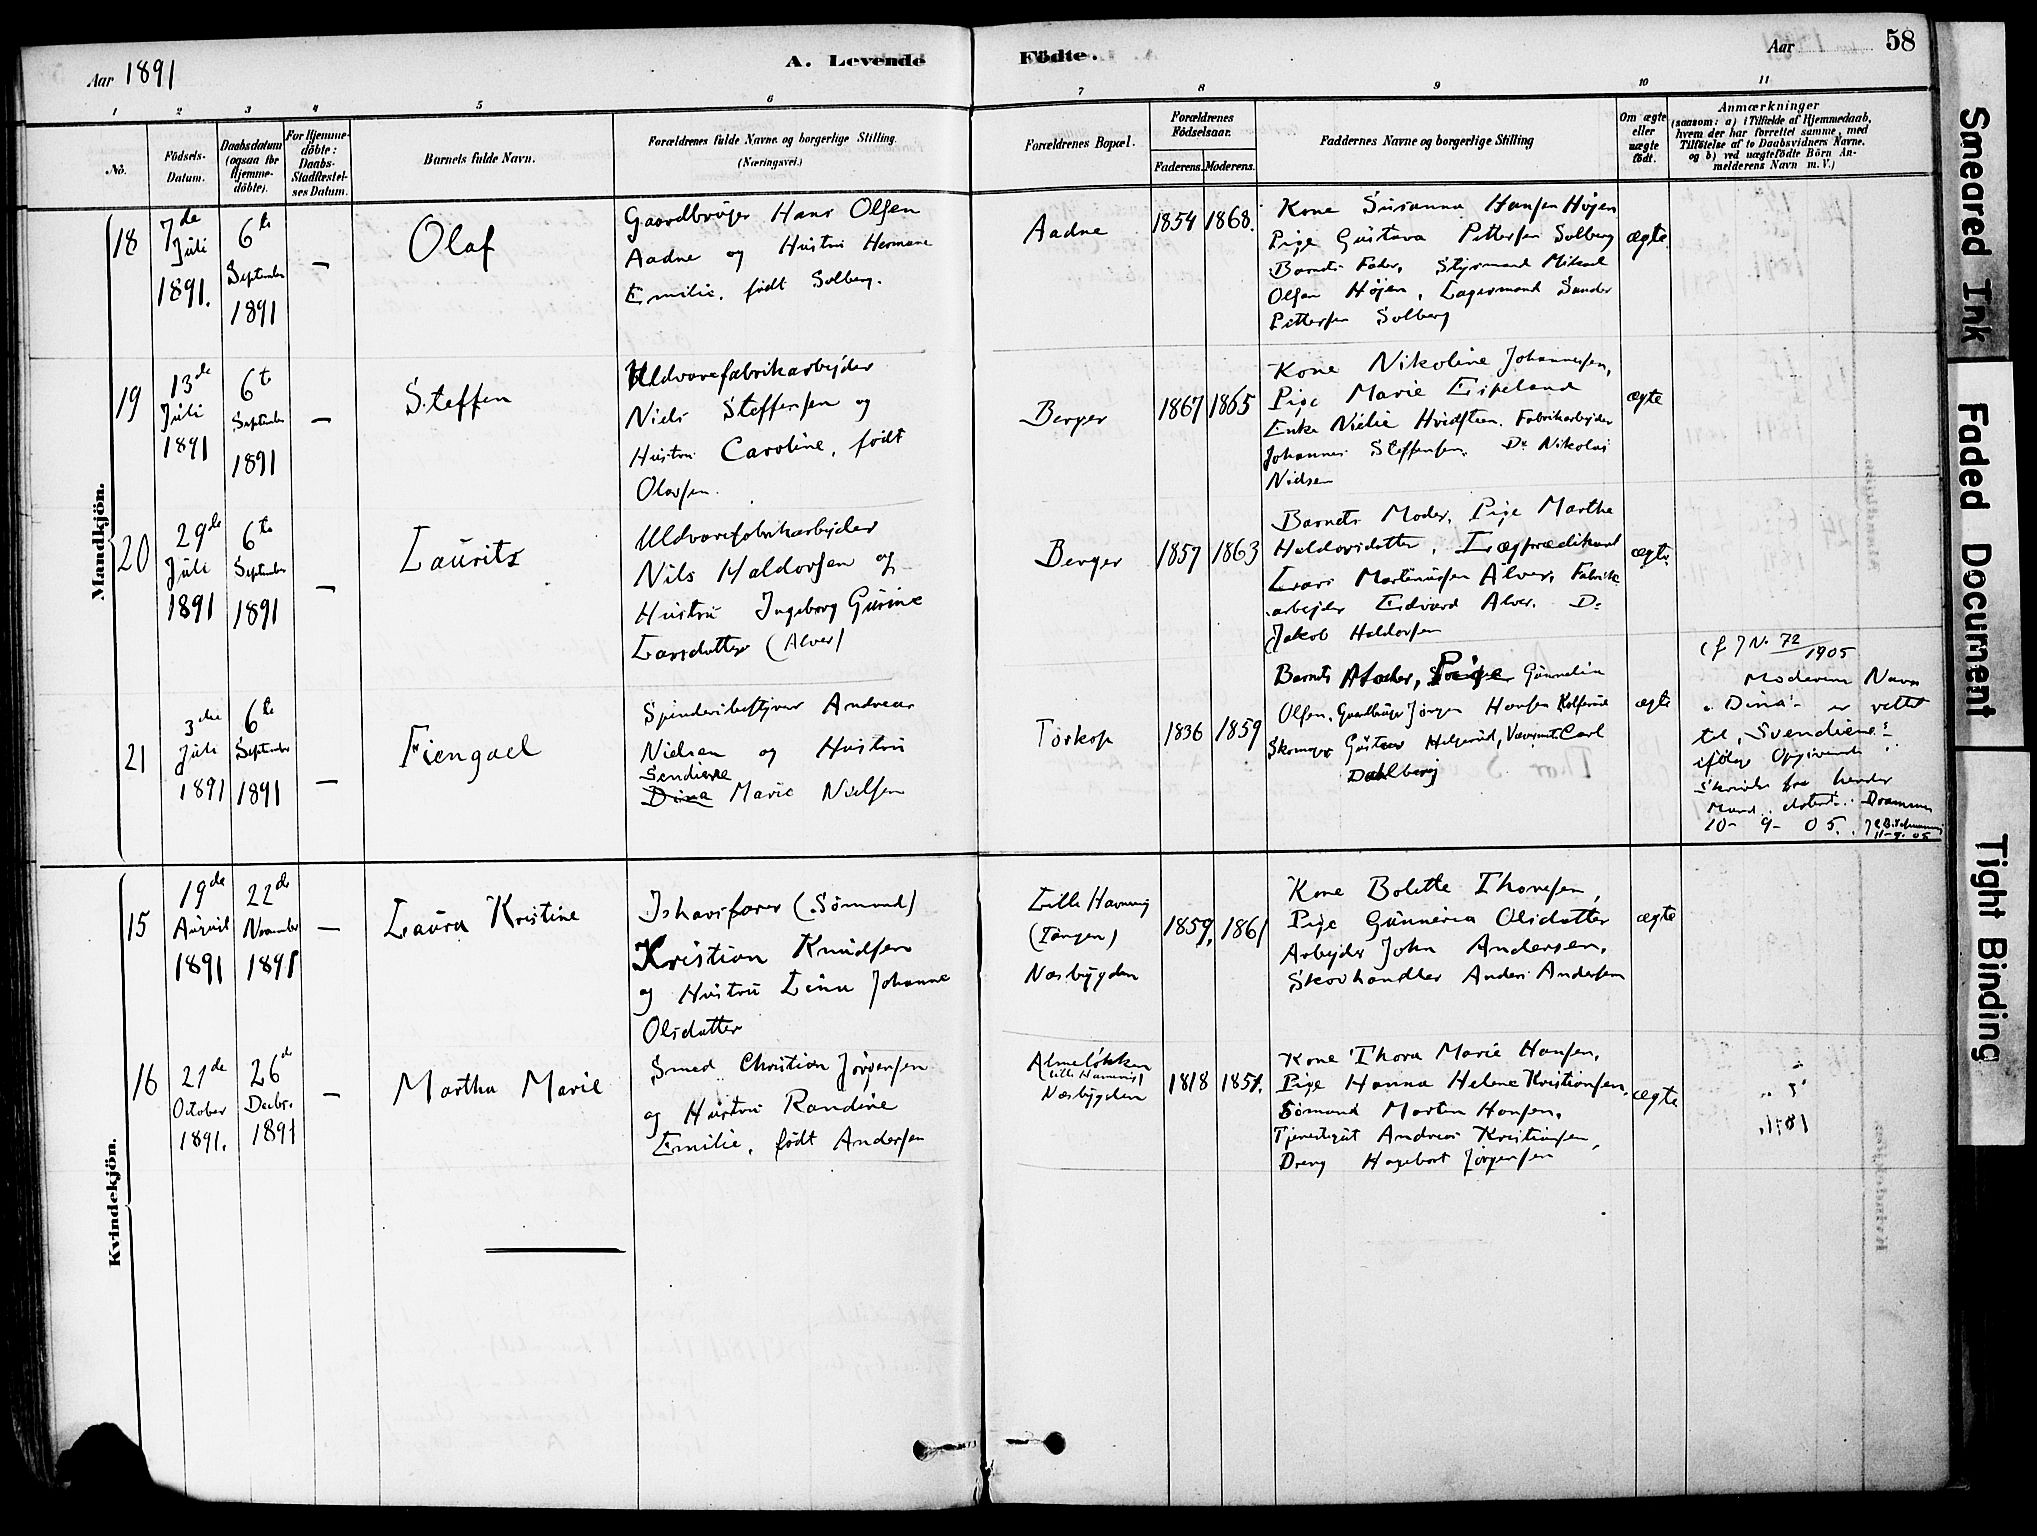 Aar 1891
A. Levende
Födte.
Aar
58
1
2
3
4
5
6
7
8
9
10
11
No.
Födsels-
Datum.
Daabsdatum
(ogsaa for
Hjemme-
döbte).
For Hjemme-
döbte:
Daabs-
Stadfæstel-
ses Datum.
Barnets fulde Navn.
Forældrenes fulde Navne og borgerlige Stilling.
(Næringsvei.)
Forældrenes Bopæl.
Forældrenes
Födselsaar.
Faderens.
Moderens.
Faddernes Navne og borgerlige Stilling
Om ægte
eller
uægte
födt.
Anmærkninger
(saasom: a) i Tilfælde af Hjemmedaab,
hvem der har forrettet samme, med
Tilföielse af to Daabsvidners Navne,
og b) ved uægtefödte Börn An-
melderens Navn m. V.)
Mandkjön.
18
7de
Juli
1891.
6te
September
1891
—
Olaf
Gaardbruger Hans Olsen
Aadne og Hustru Hermane
Emilie, født Solberg.
Aadne
1854
1868.
Kone Susanna Hansen Højen
Pige Gustava Pettersen Solberg
Barnets Fader, Styrmand Mikael
Olsen Højen, Lagermand Sander
Pettersen Solberg
ægte
19
13de
Juli
1891
6te
September
1891
—
Steffen
Uldvarefabrikarbejder
Niels Steffensen og
Hustru Caroline, født
Olavsen.
Berger
1867
1865
Kone Nikoline Johannessen,
Pige Marie Espeland
Enke Nielie Hvidsteen. Fabrikarbejder
Johannes Steffensen. Do Nikolai
Nielsen
ægte
20
29de
Juli
1891
6te
September
1891
—
Laurits
Uldvarefabrikarbejder
Nils Haldorsen og
Hustru Ingeborg Gurine
Larsdatter (Alver)
Berger
1857
1863
Barnets Moder, Pige Martha
Haldorsdatter, Lægprædikant
Lars Martinussen Alver, Fabrik
arbejder Edvard Alver. Do
Jakob Haldorsen
ægte
21
3die
Juli
1891
6te
September
1891
—
Fiengael
Spinderibestyrer Andreas
Nielsen og Hustru
Sendiene
Dina Marie Nielsen
Torkop
1836
1859
Barnets Moder, Pige Gunnelia
Olsen, Gaardbruger Jørgen Hansen Kolserud
Skomager Gustav Helgerud, Væverm. Carl
Dahlberg
ægte
(cf J No. 72/1905
Moderens Navn
"Dina" er rettet
til "Svendiene"
ifølge Opgivende
Skrivelse fra hendes
Mand, dateret Drammen
10-9-05.
11-9-05
Kvindekjön.
15
19de
August
1891
22de
November
1891
—
Laura Kristine
Ishavsfarer (Sømand)
Kristian Knudsen
og Hustru Lina Johanne
Olsdatter
Lille Havnvig
(Tangen)
Næsbygden
1859,
1861
Kone Bolette Thoresen,
Pige Gunneria Olsdatter
Arbejder John Andersen,
Skovhandler Anders Andersen
ægte
16
21de
October
1891.
26de
Decbr.
1891
—
Martha Marie
Smed Christian Jørgensen
og Hustru Randine
Emilie, født Andersen
Almeløkken
(Lille Havnvig)
Næsbygden
1818
1851.
Kone Thora Marie Hansen,
Pige Hanna Helene Kristiansen,
Sømand Martin Hansen,
Tjenestegut Andreas Kristiansen,
Dreng Hagebart Jørgensen
ægte
Smeared Ink
Faded Document
Tight Binding